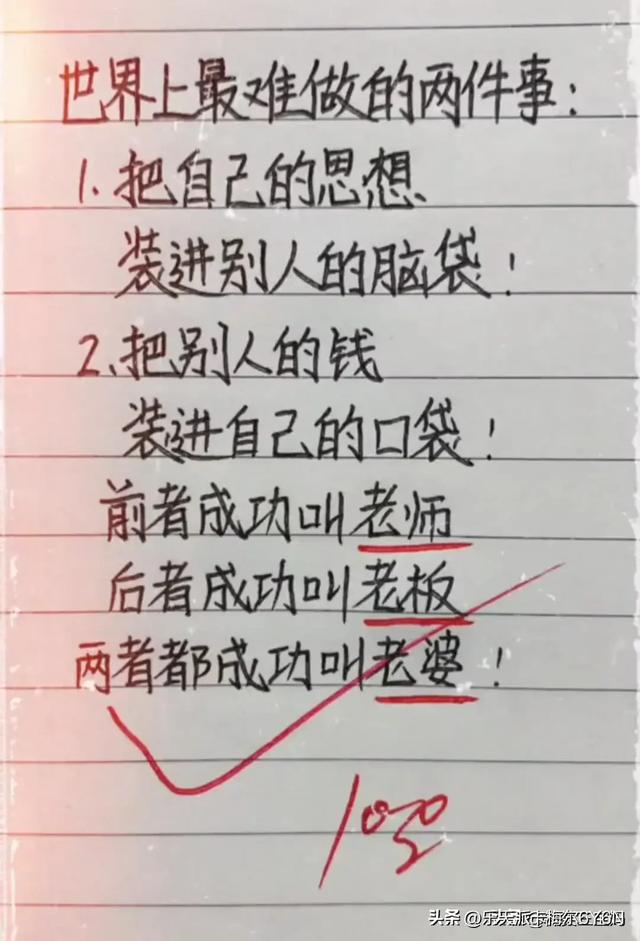 世界上最难做的两件事:
1. 把自己的思想
装进别人的脑袋!
2. 把别人的钱
装进自己的口袋!
前者成功叫老师
后者成功叫老板
两者都成功叫老婆!
100